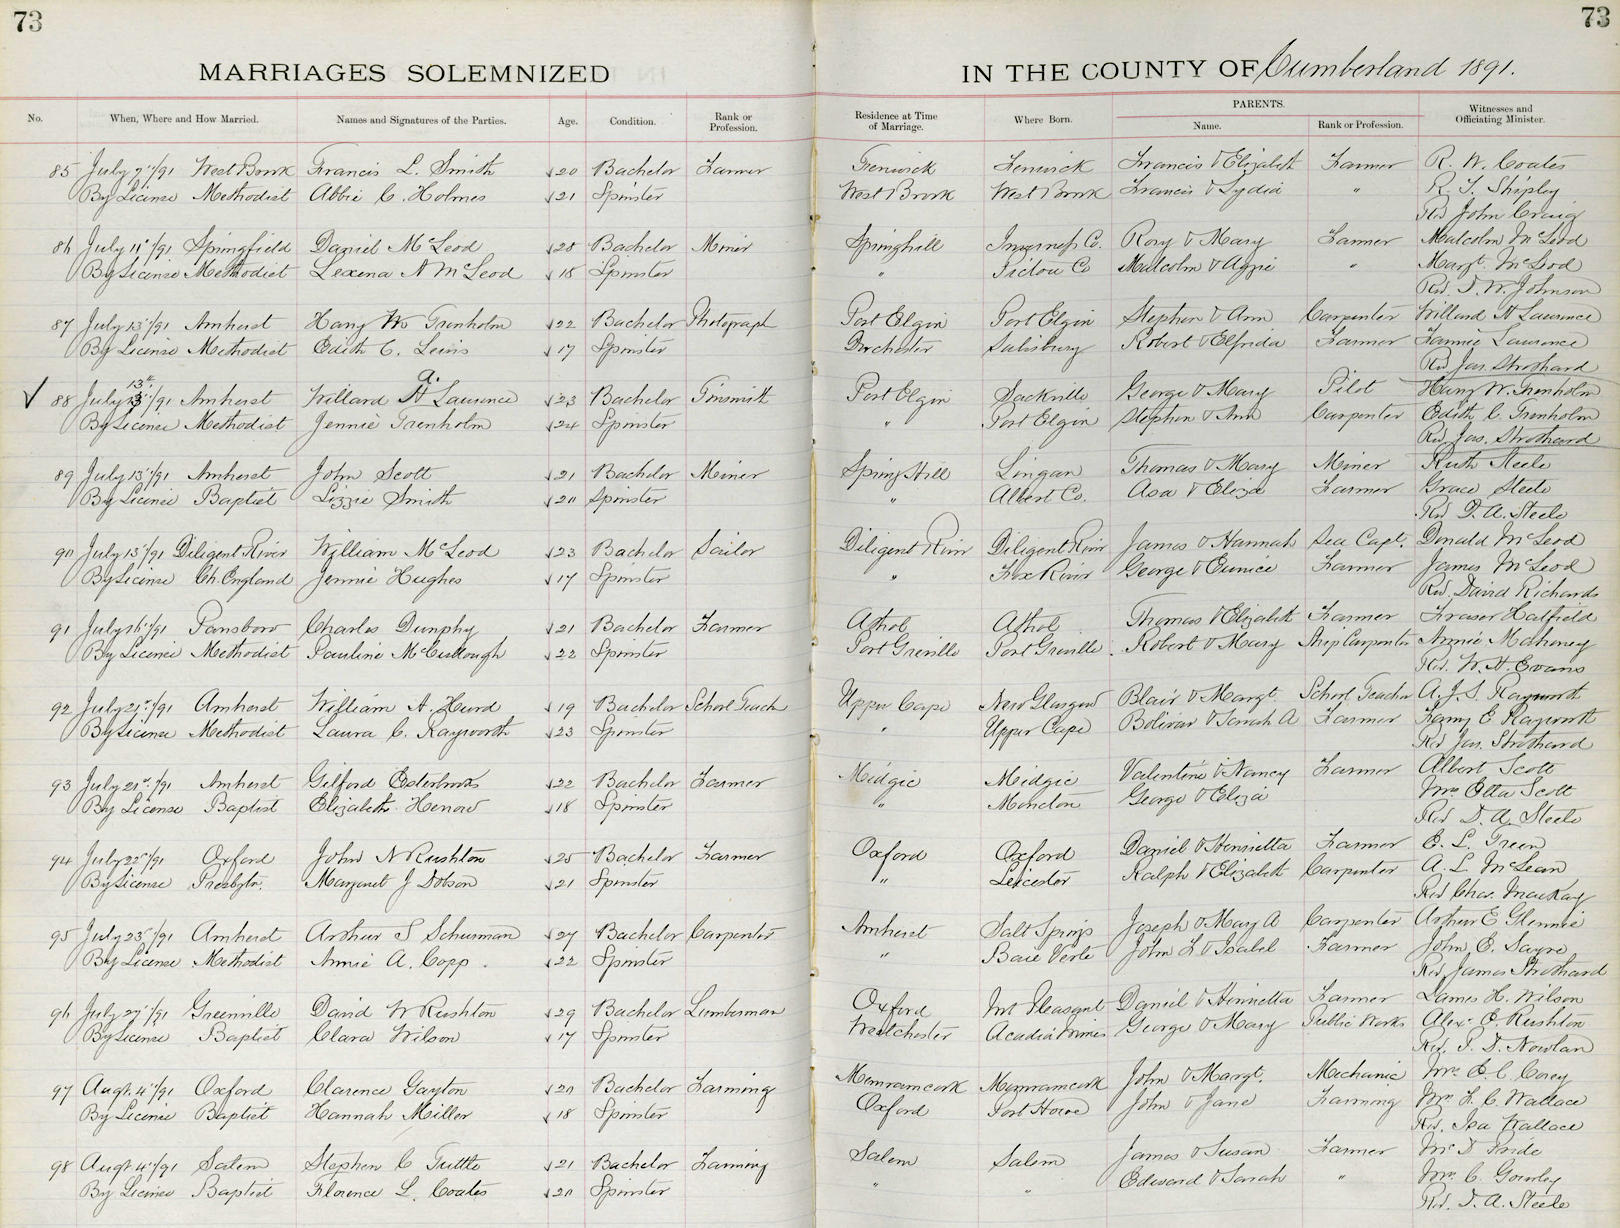 73 73
MARRIAGES SOLEMNIZED IN THE COUNTY OF Cumberland 1891.
No. When, Where and How Married. Names and Signatures of the Parties. Age. Condition. Rank or Profession. Residence at Time of Marriage. Where Born. PARENTS. Name. Rank or Profession. Witnesses and Officiating Minister.
85 July 7"/91 West Brook Francis L. Smith 20 Bachelor Farmer Fenwick Fenwick Francis & Elizabeth Farmer R. W. Coates
By License Methodist Abbie C. Holmes 21 Spinster West Brook West Brook Francis & Lydia " R. T. Shipley
Rev John Craig
86 July 11"/91 Springfield Daniel McLeod 28 Bachelor Miner Springhill Inverness Co. Rory & Mary Farmer Malcolm McLeod
By License Methodist Lexena A McLeod 18 Spinster " Pictou Co Malcolm & Aggie " Margt. McLeod
Rev. J. W. Johnson
87 July 13"/91 Amherst Harry W Trenholm 22 Bachelor Photograph Port Elgin Port Elgin Stephen & Ann Carpenter Willard A Laurence
By License Methodist Edith C. Lewis 17 Spinster Dorchester Salisbury Robert & Elfrida Farmer Jannie Laurence
Rev Jas. Strothard
✓ 88 July 13th/91 Amherst Willard a. Laurence 23 Bachelor Tinsmith Port Elgin Sackville George & Mary Pilot Harry W. Trenholm
By License Methodist Jennie Trenholm 24 Spinster " Port Elgin Stephen & Ann Carpenter Edith C. Trenholm
Rev. Jas. Strothard
89 July 13"/91 Amherst John Scott 21 Bachelor Miner Spring Hill Lingan Thomas & Mary Miner Ruth Steele
By License Baptist Lizzie Smith 20 Spinster " Albert Co. Asa & Eliza Farmer Grace Steele
Rev D. A. Steele
90 July 15"/91 Diligent River William McLeod 23 Bachelor Sailor Diligent River Diligent River James & Hannah Sea Capt. Donald McLeod
By License Ch. England Jennie Hughes 17 Spinster " Fox River George & Eunice Farmer James McLeod
Rev. David Richards
91 July 16"/91 Parrsboro Charles Dunphy 21 Bachelor Farmer Athol Athol Thomas & Elizabeth Farmer Fraser Hatfield
By License Methodist Pauline McCullough 22 Spinster Port Greville Port Greville Robert & Mary Ship Carpenter Annie Mahoney
Rev. W. H. Evans
92 July 21st/91 Amherst William A. Hurd 19 Bachelor School Teach Upper Cape New Glasgow Blair & Margt. School Teacher A. J. S. Rayworth
By License Methodist Laura C. Rayworth 23 Spinster " Upper Cape Bolivar & Sarah A Farmer Fanny E Rayworth
Rev Jas. Strothard
93 July 21st/91 Amherst Gilford Esterbrooks 22 Bachelor Farmer Midgic Midgic Valentine & Nancy Farmer Albert Scott
By License Baptist Elizabeth Henow 18 Spinster " Moncton George & Eliza Mrs Etta Scott
Rev D. A. Steele
94 July 22"/91 Oxford John N Rushton 25 Bachelor Farmer Oxford Oxford Daniel & Henrietta Farmer E. L. Green
By License Presbytn. Margaret J Dobson 21 Spinster " Leicester Ralph & Elizabeth Carpenter A. L. McLean
Rev Chas. MacKay
95 July 23"/91 Amherst Arthur S Schurman 27 Bachelor Carpenter Amherst Salt Springs Joseph & Mary A Carpenter Arthur E Glennie
By License Methodist Annie A. Copp. 22 Spinster " Baie Verte John L & Isabel Farmer John E. Sayre
Rev. James Strothard
96 July 27"/91 Greenville David W Rushton 29 Bachelor Lumberman Oxford Mt Pleasant Daniel & Henrietta Farmer James H. Wilson
By License Baptist Clara Wilson 17 Spinster Westchester Acadia Mines George & Mary Public Works Alexr. E. Rushton
Rev. P. D. Nowlan
97 Augt. 4"/91 Oxford Clarence Gayton 20 Bachelor Farming Memramcook Memramcook John & Margt. Mechanic Mrs. E. C. Corey
By License Baptist Hannah Miller 18 Spinster Oxford Port Howe John & Jane Farming Mrs. F. C. Wallace
Rev. Isa Wallace
98 Augt. 4"/91 Salem Stephen C Tuttle 21 Bachelor Farming Salem Salem James & Susan Farmer Mr D Pride
By License Baptist Florence L. Coates 20 Spinster " " Edward & Sarah " Mrs. C. Gourley
Rev. D. A. Steele